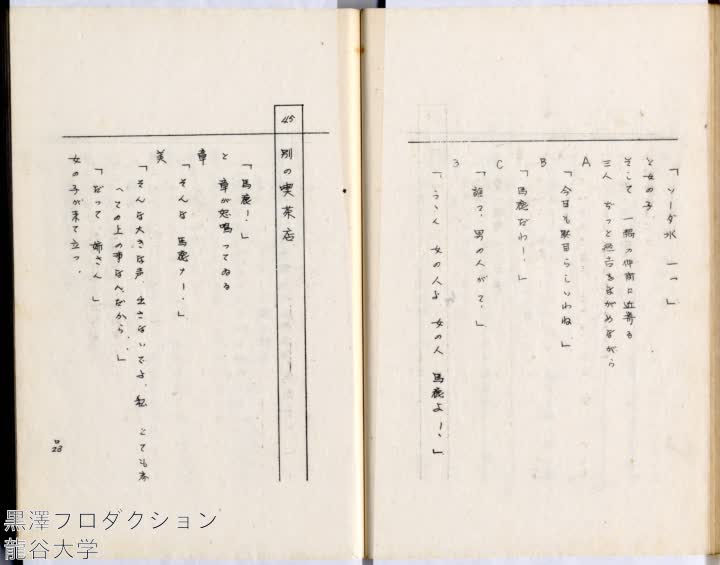 「ソーダ水 一つ」
と女の子
そして 一隅の仲間に近寄る
三人 じっと無言をながめながら
A
「今日も駄目らしいわね.」
B
「馬鹿だわー.」
C
「誰て、男の人がて.」
3
「うゝん 女の人よ 女の人 馬鹿よー.」
45 別の喫茶店
「馬鹿!.」
章
と 章が怒鳴ってゐる
「そんな 馬鹿ナー.」
美
「そんな大きな声. 出さないでよ. 私 とても
その上の事なんだから..」
「だって 姉さん」
女の子が来て立つ.
ロ 23
黒澤プロダクション
龍谷大学